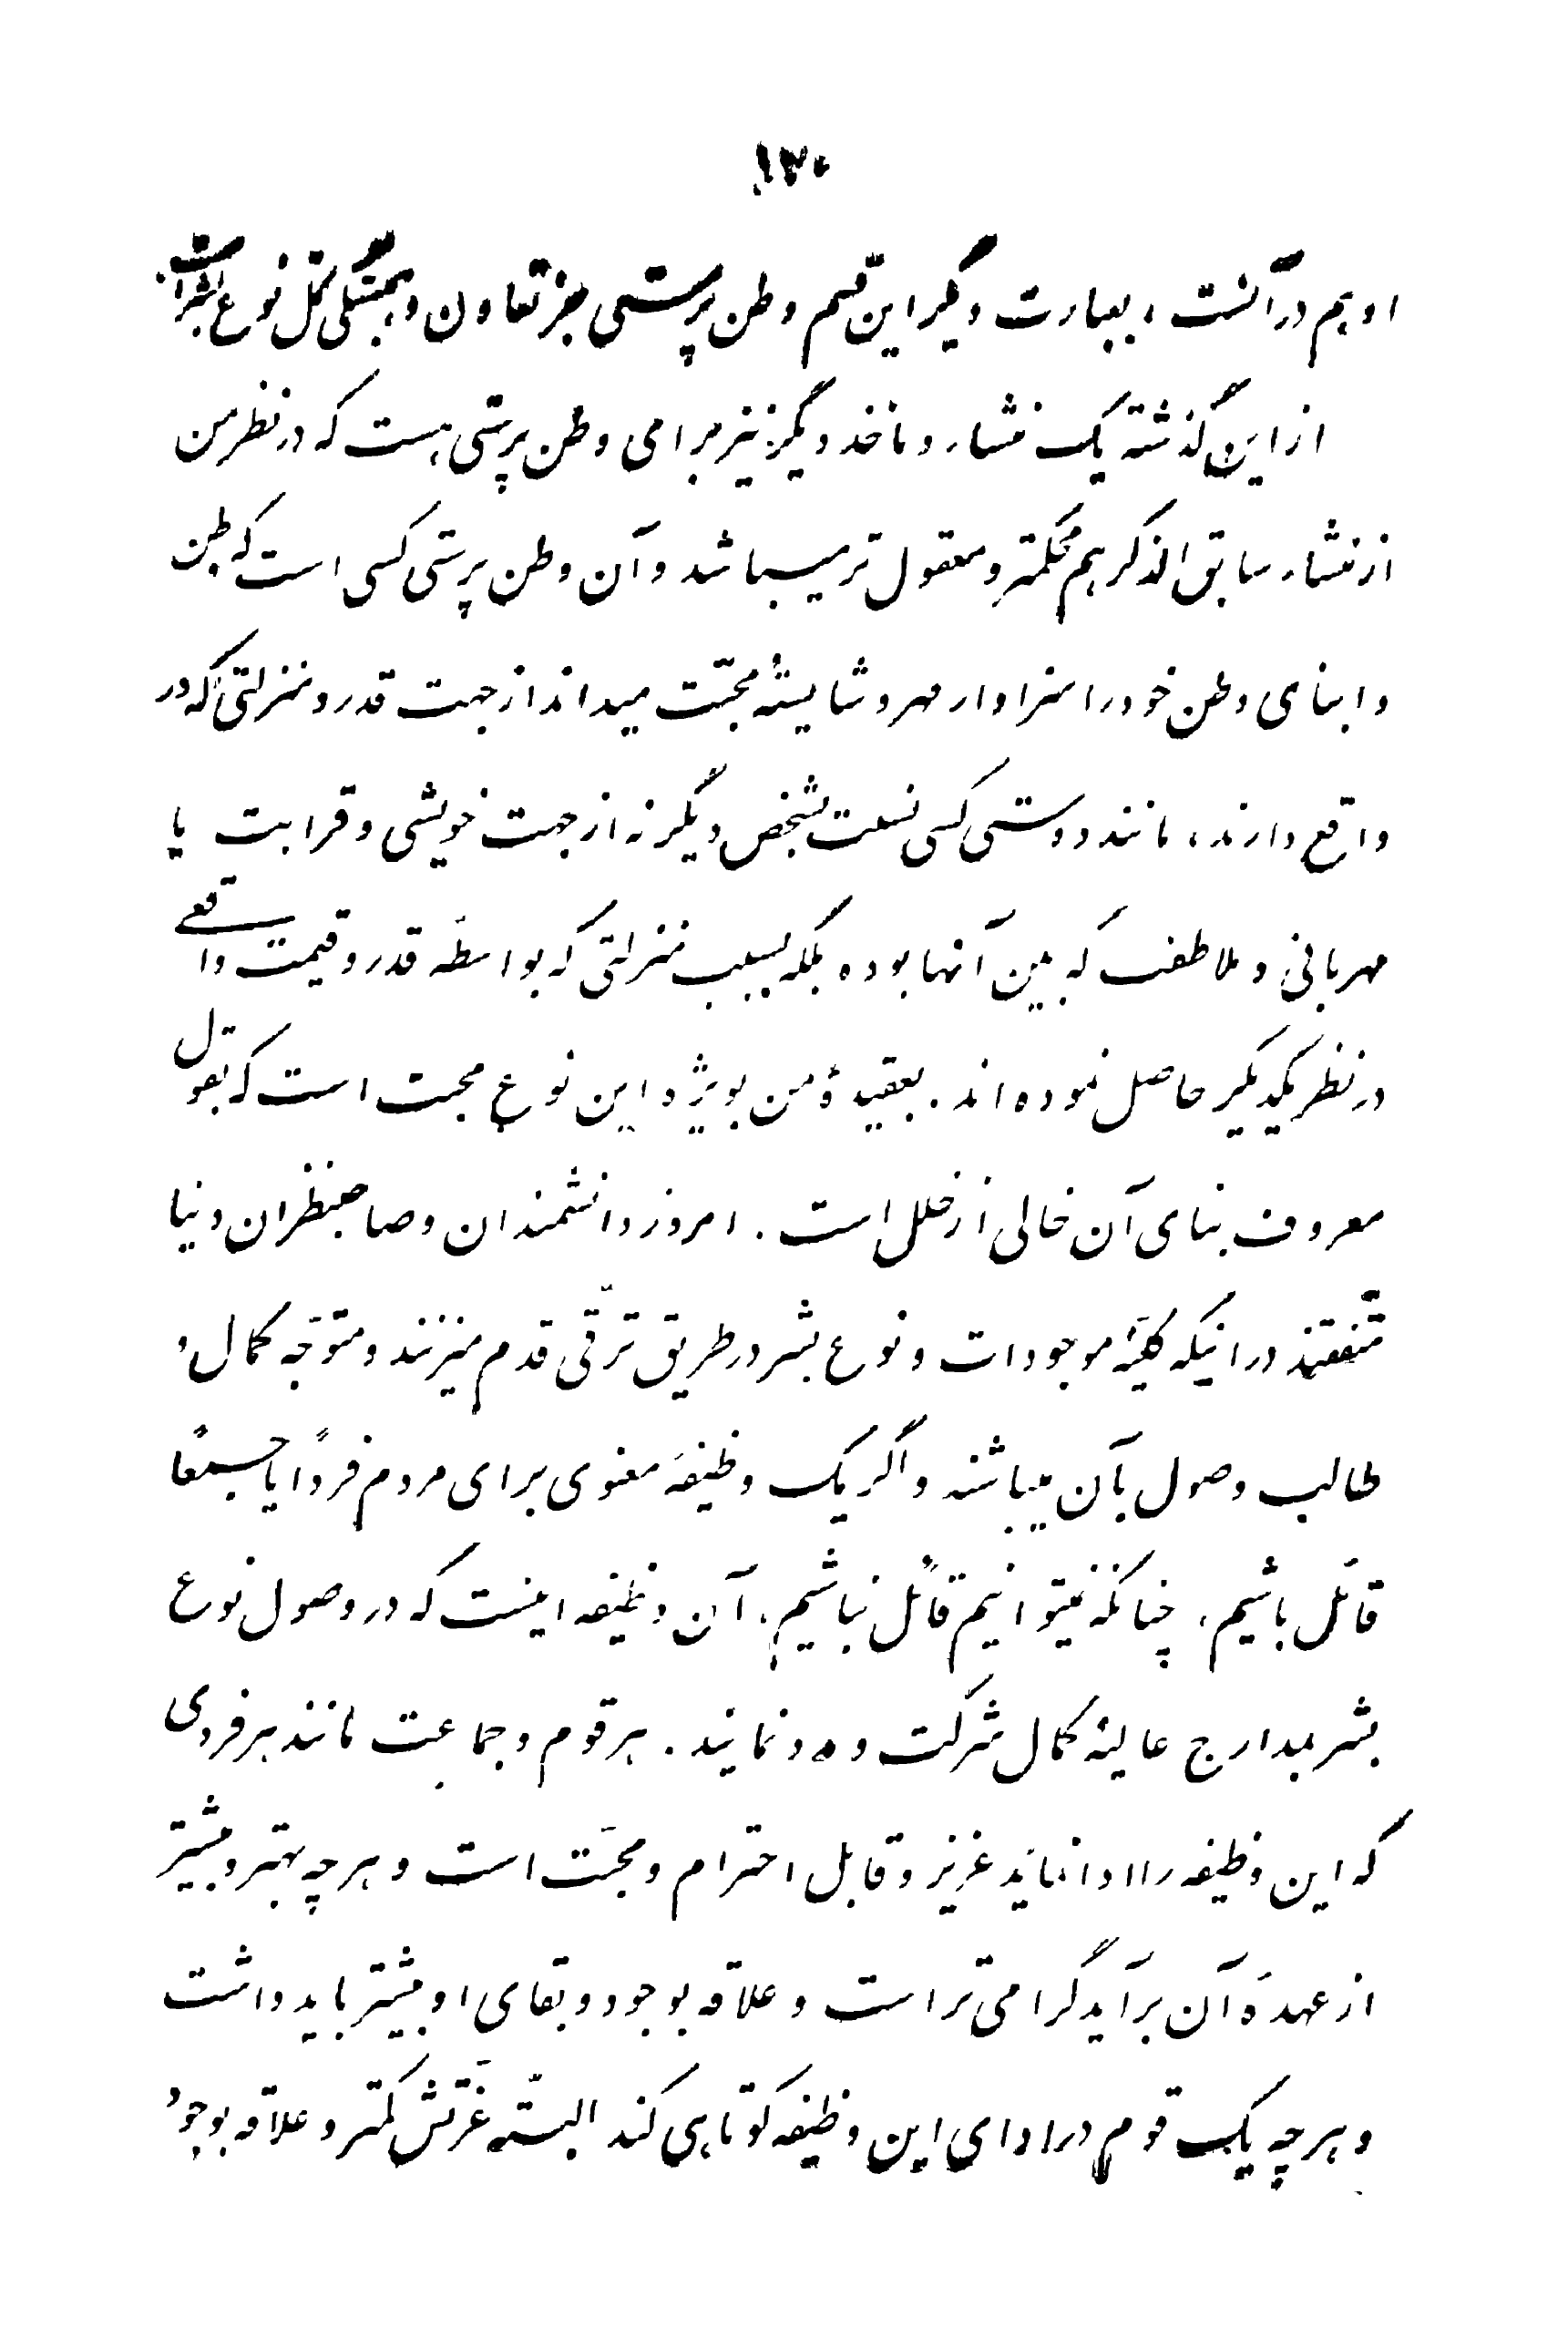 ۱۳۰
او هم در آنست، بعبارت دیگر این قسم وطن پرستی جزء تعاون و همبستگی کل نوع بشر است.
از این گذشته یک منشاء و ماخذ دیگر نیز برای وطن پرستی هست که در نظر من
از منشاء سابق الذکر هم محکمتر و معقول تر میباشد و آن وطن پرستی کسی است که وطن
و ابنای وطن خود را سزاوار مهر و شایستهٔ محبّت میداند از جهت قدر و منزلتی که در
واقع دارند، مانند دوستی کسی نسبت بشخص دیگر نه از جهت خویشی و قرابت یا
مهربانی و ملاطفت که بین آنها بوده بلکه بسبب منزلتی که بواسطهٔ قدر و قیمت واقعی
در نظر یکدیگر حاصل نموده اند. بعقیدهٔ من بویژه این نوع محبت است که بقول
معروف بنای آن خالی از خلل است. امروز دانشمندان و صاحبنظران دنیا
متّفقند در اینکه کلیّهٔ موجودات و نوع بشر در طریق ترقّی قدم میزنند و متوجّه کمال و
طالب وصول بآن میباشند و اگر یک وظیفهٔ معنوی برای مردم فرداً یا جمعاً
قائل باشیم، چنانکه نمیتوانیم قائل نباشیم، آن وظیفه اینست که در وصول نوع
بشر بمدارج عالیهٔ کمال شرکت و مدد نمایند. هر قوم و جماعت مانند هر فردی
که این وظیفه را ادا نماید عزیز و قابل احترام و محبّت است و هرچه بهتر و بیشتر
از عهدهٔ آن برآید گرامی تر است و علاقه بوجود و بقای او بیشتر باید داشت
و هرچه یک قوم در ادای این وظیفه کوتاهی کند البتّه عزّتش کمتر و علاقه بوجود